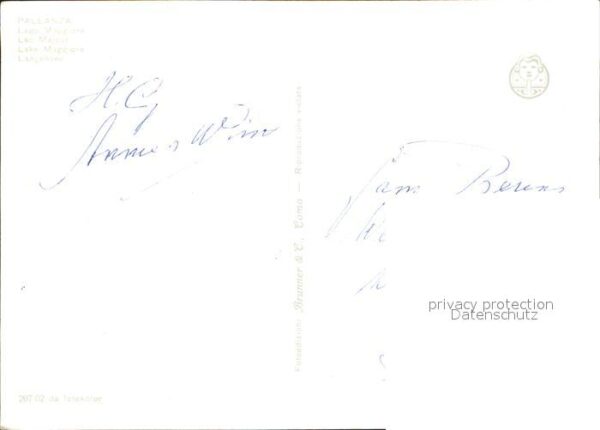 PALLANZA
Lago Maggiore
Lac Majeur
Lake Maggiore
Langensee
H.G.
Annie & Wim
Fotoedizioni Brunner & C., Como — Riproduzione vietata
Fam Berens
privacy protection
Datenschutz
207 02 da fotocolor